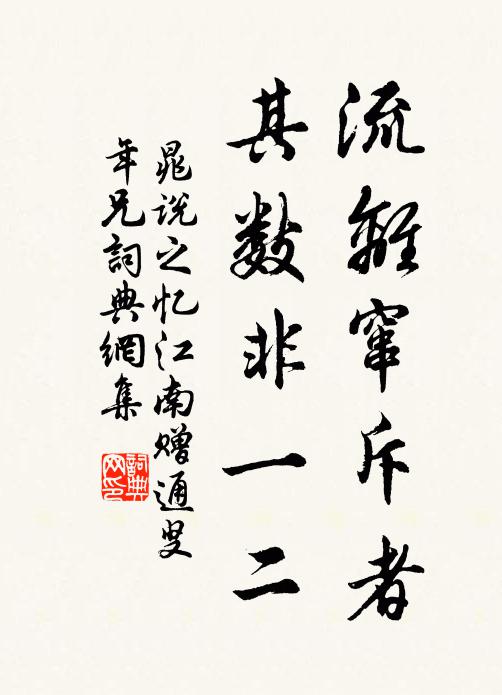 流離窜斥者
其数非一二
晁说之忆江南赠通叟
年兄詞典網集
詞典
网印